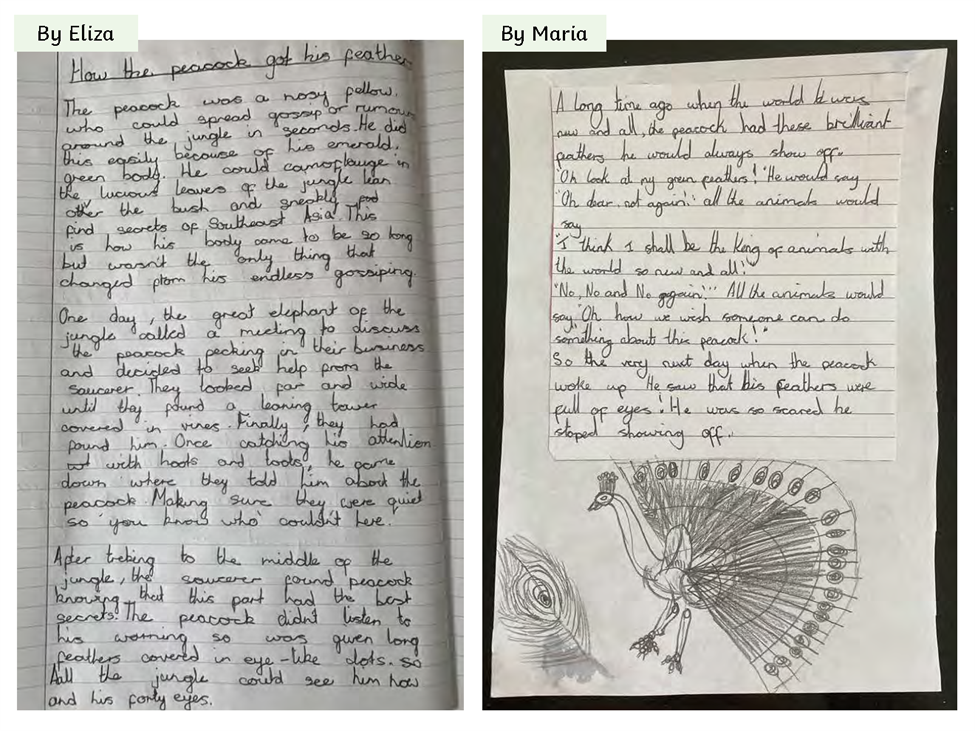 By Eliza
How the peacock got his feather
The peacock was a nosy fellow.
who could spread gossip or rumours
around the jungle in seconds. He did
this easily because of his emerald,
green body. He could camoflauge in
the lucious leaves of the jungle lean
other the bush and sneakly
find secrets of Southeast Asia. This
is how his body came to be so long
but wasn't the only thing that
changed from his endless gossiping.
One day, the great elephant of the
jungle called a meeting to discuss
the peacock pecking in their business
and decided to seek help from the
saucerer. They looked far and wide
until they found a leaning tower
covered in vines. Finally, they had
found him. Once catching his attention
with hoots and toots, he came
down where they told him about the
peacock. Making sure they were quiet
so 'you know who' couldn't here.
After treking to the middle of the
jungle, the saucerer found peacock
knowing that this part had the best
secrets. The peacock didn't listen to
his warning so was given long
feathers covered in eye-like dots. so
All the jungle could see him now
and his forty eyes.
By Maria
A long time ago when the world was
new and all, the peacock had these brilliant
feathers he would always show off.
"Oh look at my green feathers!" He would say
"Oh dear, not again!" all the animals would
say
"I think I shall be the King of animals with
the world so new and all!"
"No, No and No again!" All the animals would
say "Oh how we wish someone can do
something about this peacock!"
So the very next day when the peacock
woke up. He saw that his feathers were
full of eyes! He was so scared he
stoped showing off.